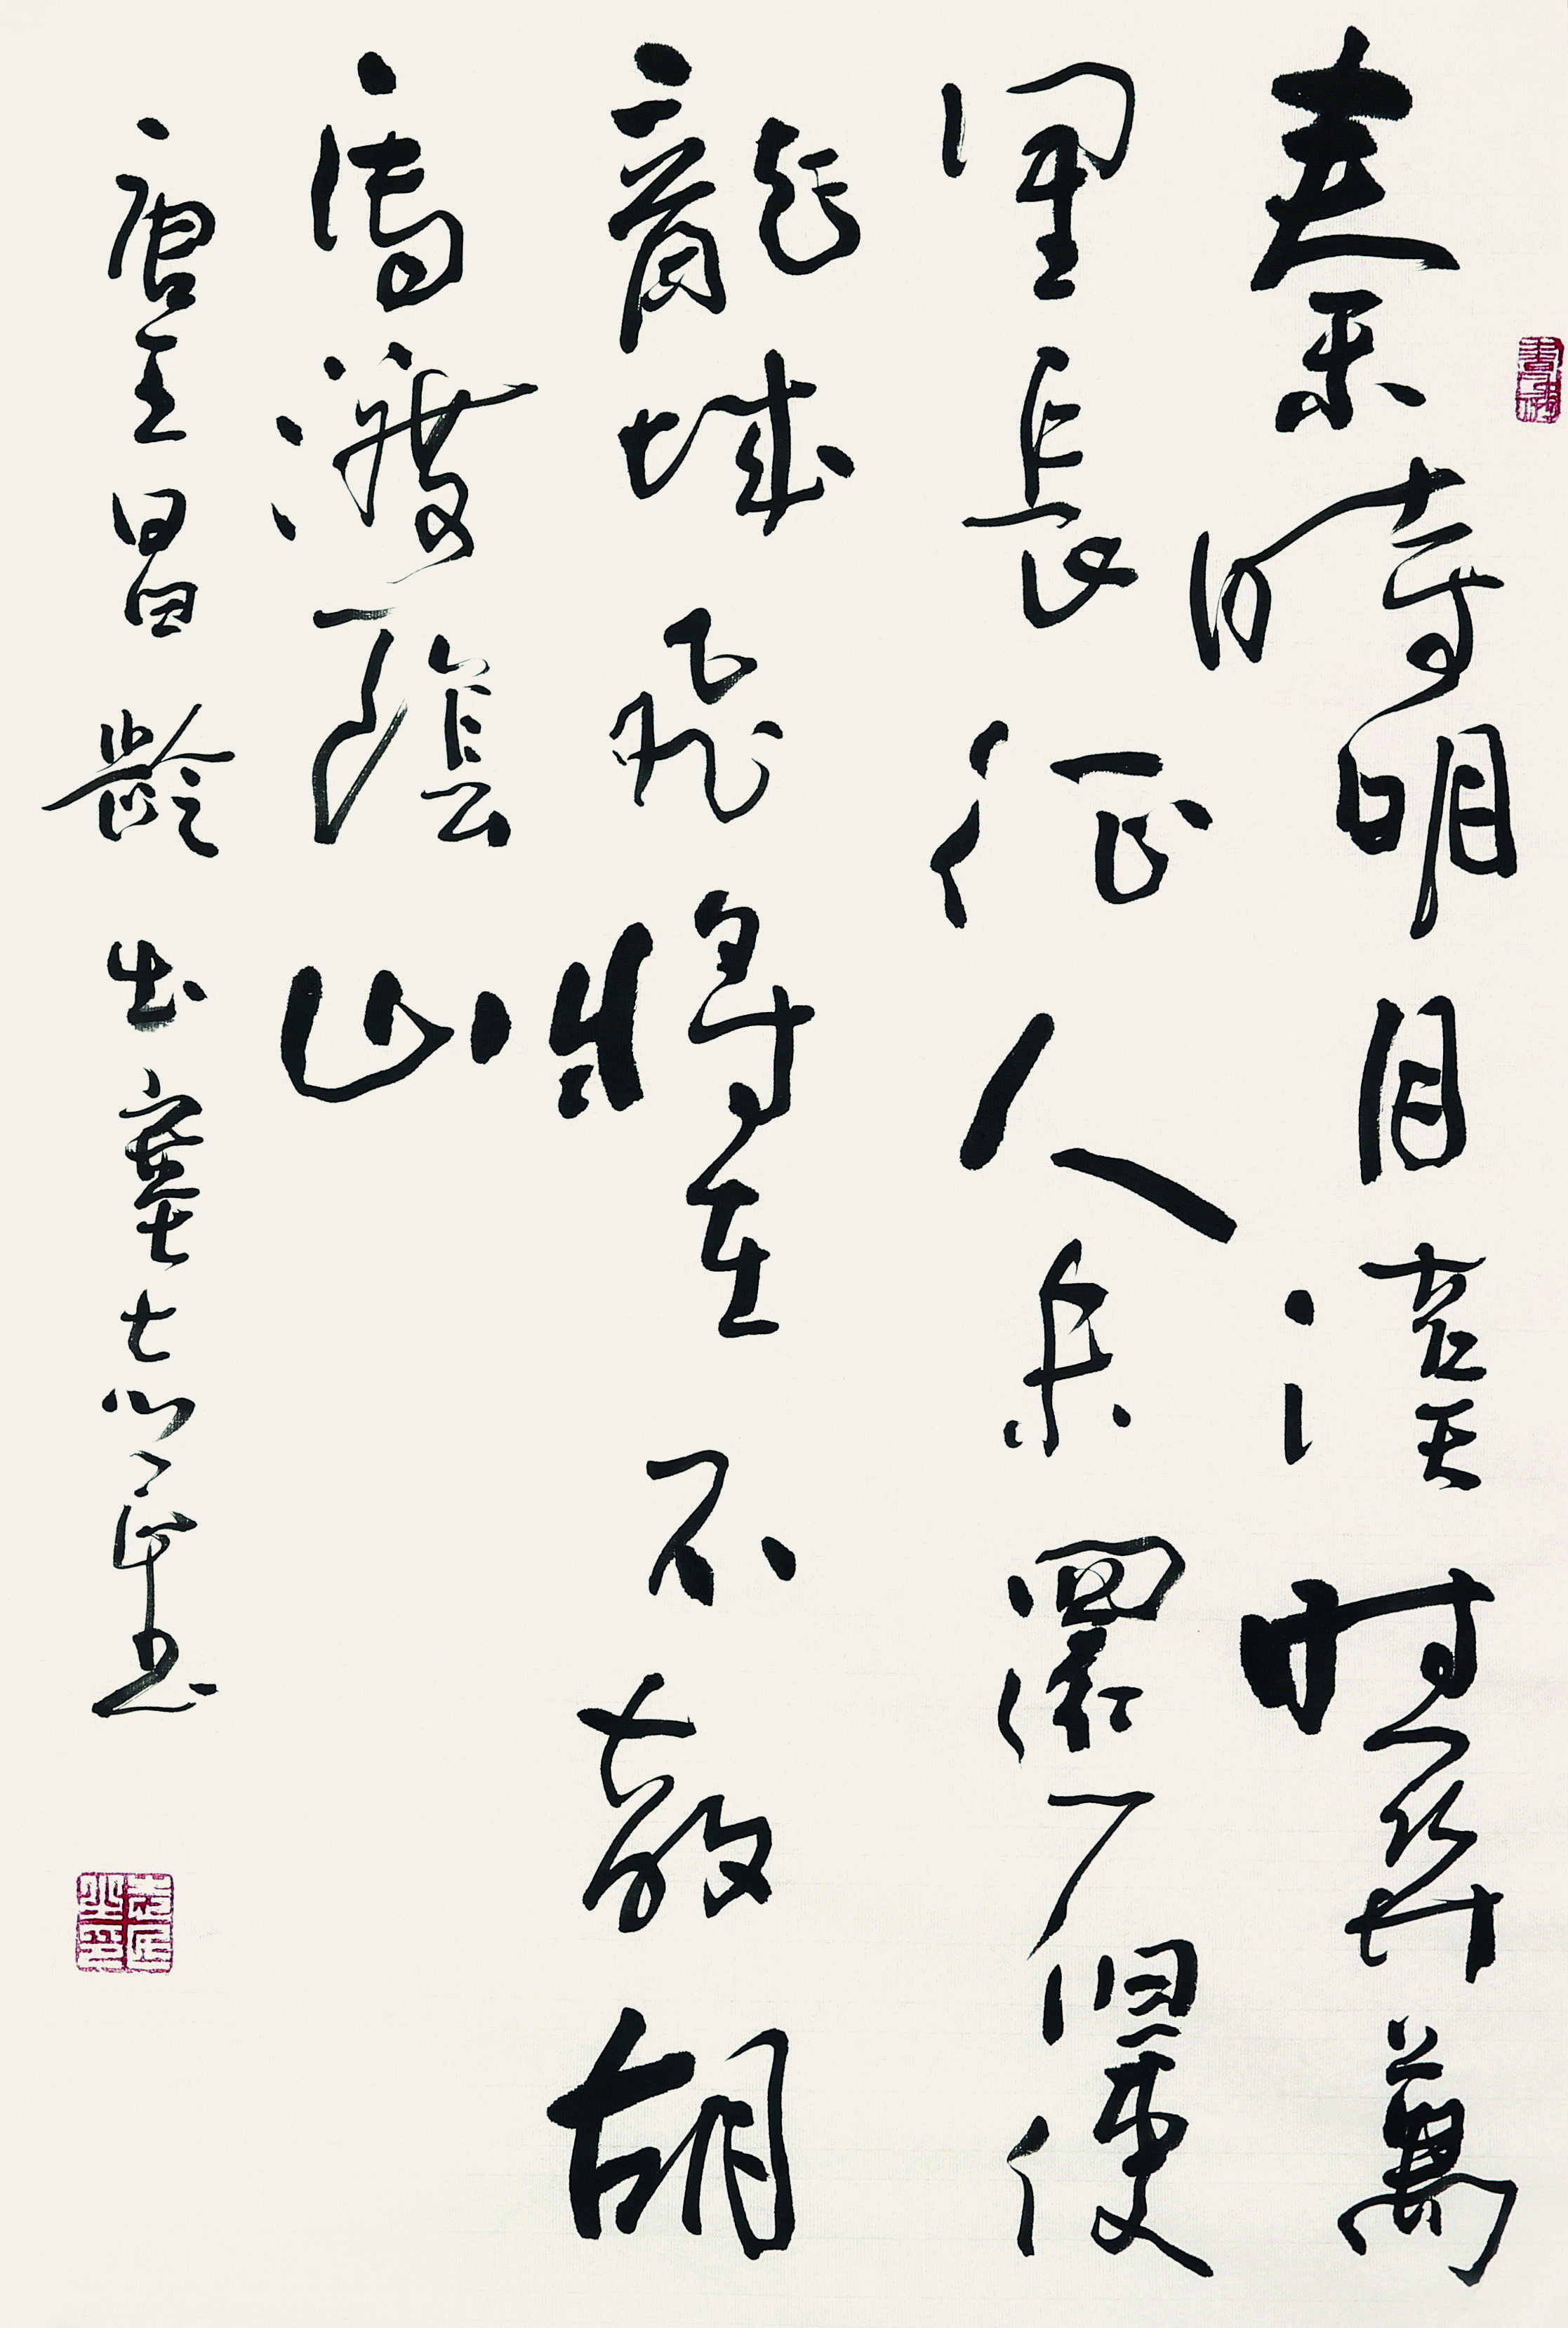 秦時明月漢時關萬
里長征人未還但使
龍城飛將在不教胡
馬渡陰山
唐王昌齡出塞志书